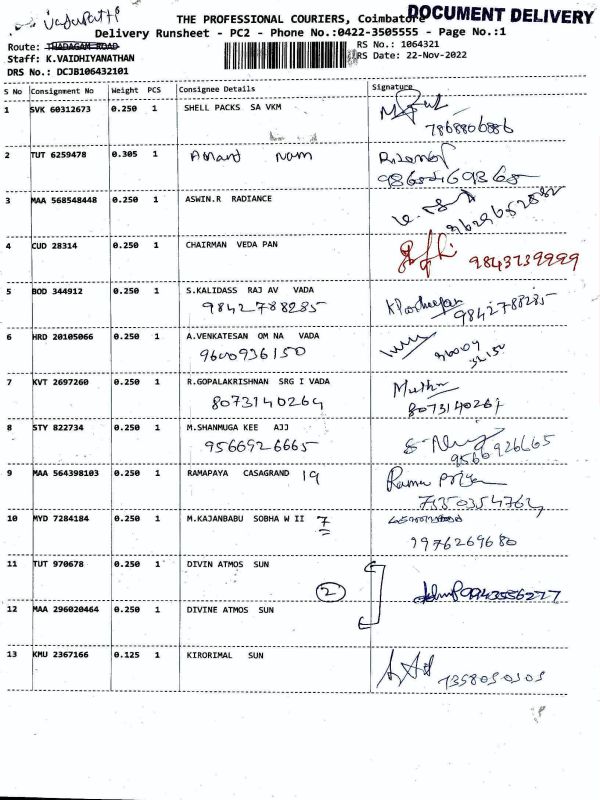 Vadapatti
DOCUMENT DELIVERY
THE PROFESSIONAL COURIERS, Coimbatore
Delivery Runsheet - PC2 - Phone No.:0422-3505555 - Page No.:1
Route: THADAGAM ROAD RS No.: 1064321
Staff: K.VAIDHIYANATHAN RS Date: 22-Nov-2022
DRS No.: DCJB106432101
S No Consignment No Weight PCS Consignee Details Signature
1 SVK 60312673 0.250 1 SHELL PACKS SA VKM
7868806886
2 TUT 6259478 0.305 1 Anand Nam
3 MAA 568548448 0.250 1 ASWIN.R RADIANCE
9629652882
4 CUD 28314 0.250 1 CHAIRMAN VEDA PAN
9843739999
5 BOD 344912 0.250 1 S.KALIDASS RAJ AV VADA
9842788285 9842788285
6 HRD 20105066 0.250 1 A.VENKATESAN OM NA VADA
9600936150
7 KVT 2697260 0.250 1 R.GOPALAKRISHNAN SRG I VADA Muthu
8073140264 8073140264
8 STY 822734 0.250 1 M.SHANMUGA KEE AJJ
9566926665 9566926665
9 MAA 564398103 0.250 1 RAMAPAYA CASAGRAND 19 Rama Priya
7550354764
10 MYD 7284184 0.250 1 M.KAJANBABU SOBHA W II 7
9976269680
11 TUT 970678 0.250 1 DIVIN ATMOS SUN
2 9943556277
12 MAA 296020464 0.250 1 DIVINE ATMOS SUN
13 KMU 2367166 0.125 1 KIRORIMAL SUN
7358050505